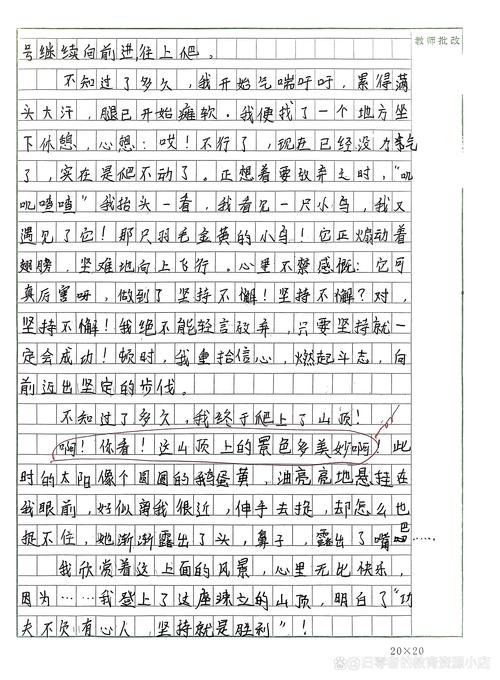 教师批改
号继续向前进,往上爬。
不知过了多久,我开始气喘吁吁,累得满
头大汗,腿已开始瘫软。我便找了一个地方坐
下休憩,心想:哎!不行了,现在已经没力气
了,实在是爬不动了。正想着要放弃之时,“叽
叽喳喳”我抬头一看,我看见一只小鸟,我又
遇见了它!那只羽毛金黄的小鸟!它正煽动着
翅膀,坚难地向上飞行。心里不禁感慨:它可
真厉害呀,做到了坚持不懈!坚持不懈?对,
坚持不懈!我绝不能轻言放弃,只要坚持就一
定会成功!顿时,我重拾信心,燃起斗志,向
前迈出坚定的步伐。
不知过了多久,我终于爬上了山顶!
啊!你看!这山顶上的景色多美妙啊!此
时的太阳像个圆圆的鸡蛋黄,油亮亮地悬挂在
我眼前,好似离我很近,伸手去捉,却怎么也
捉不住,她渐渐露出了头,鼻子,露出了嘴巴……
我欣赏着这上面的风景,心里无比快乐,
因为……我登上了这座漆立的山顶,明白了“功
夫不负有心人,坚持就是胜利”!
20×20